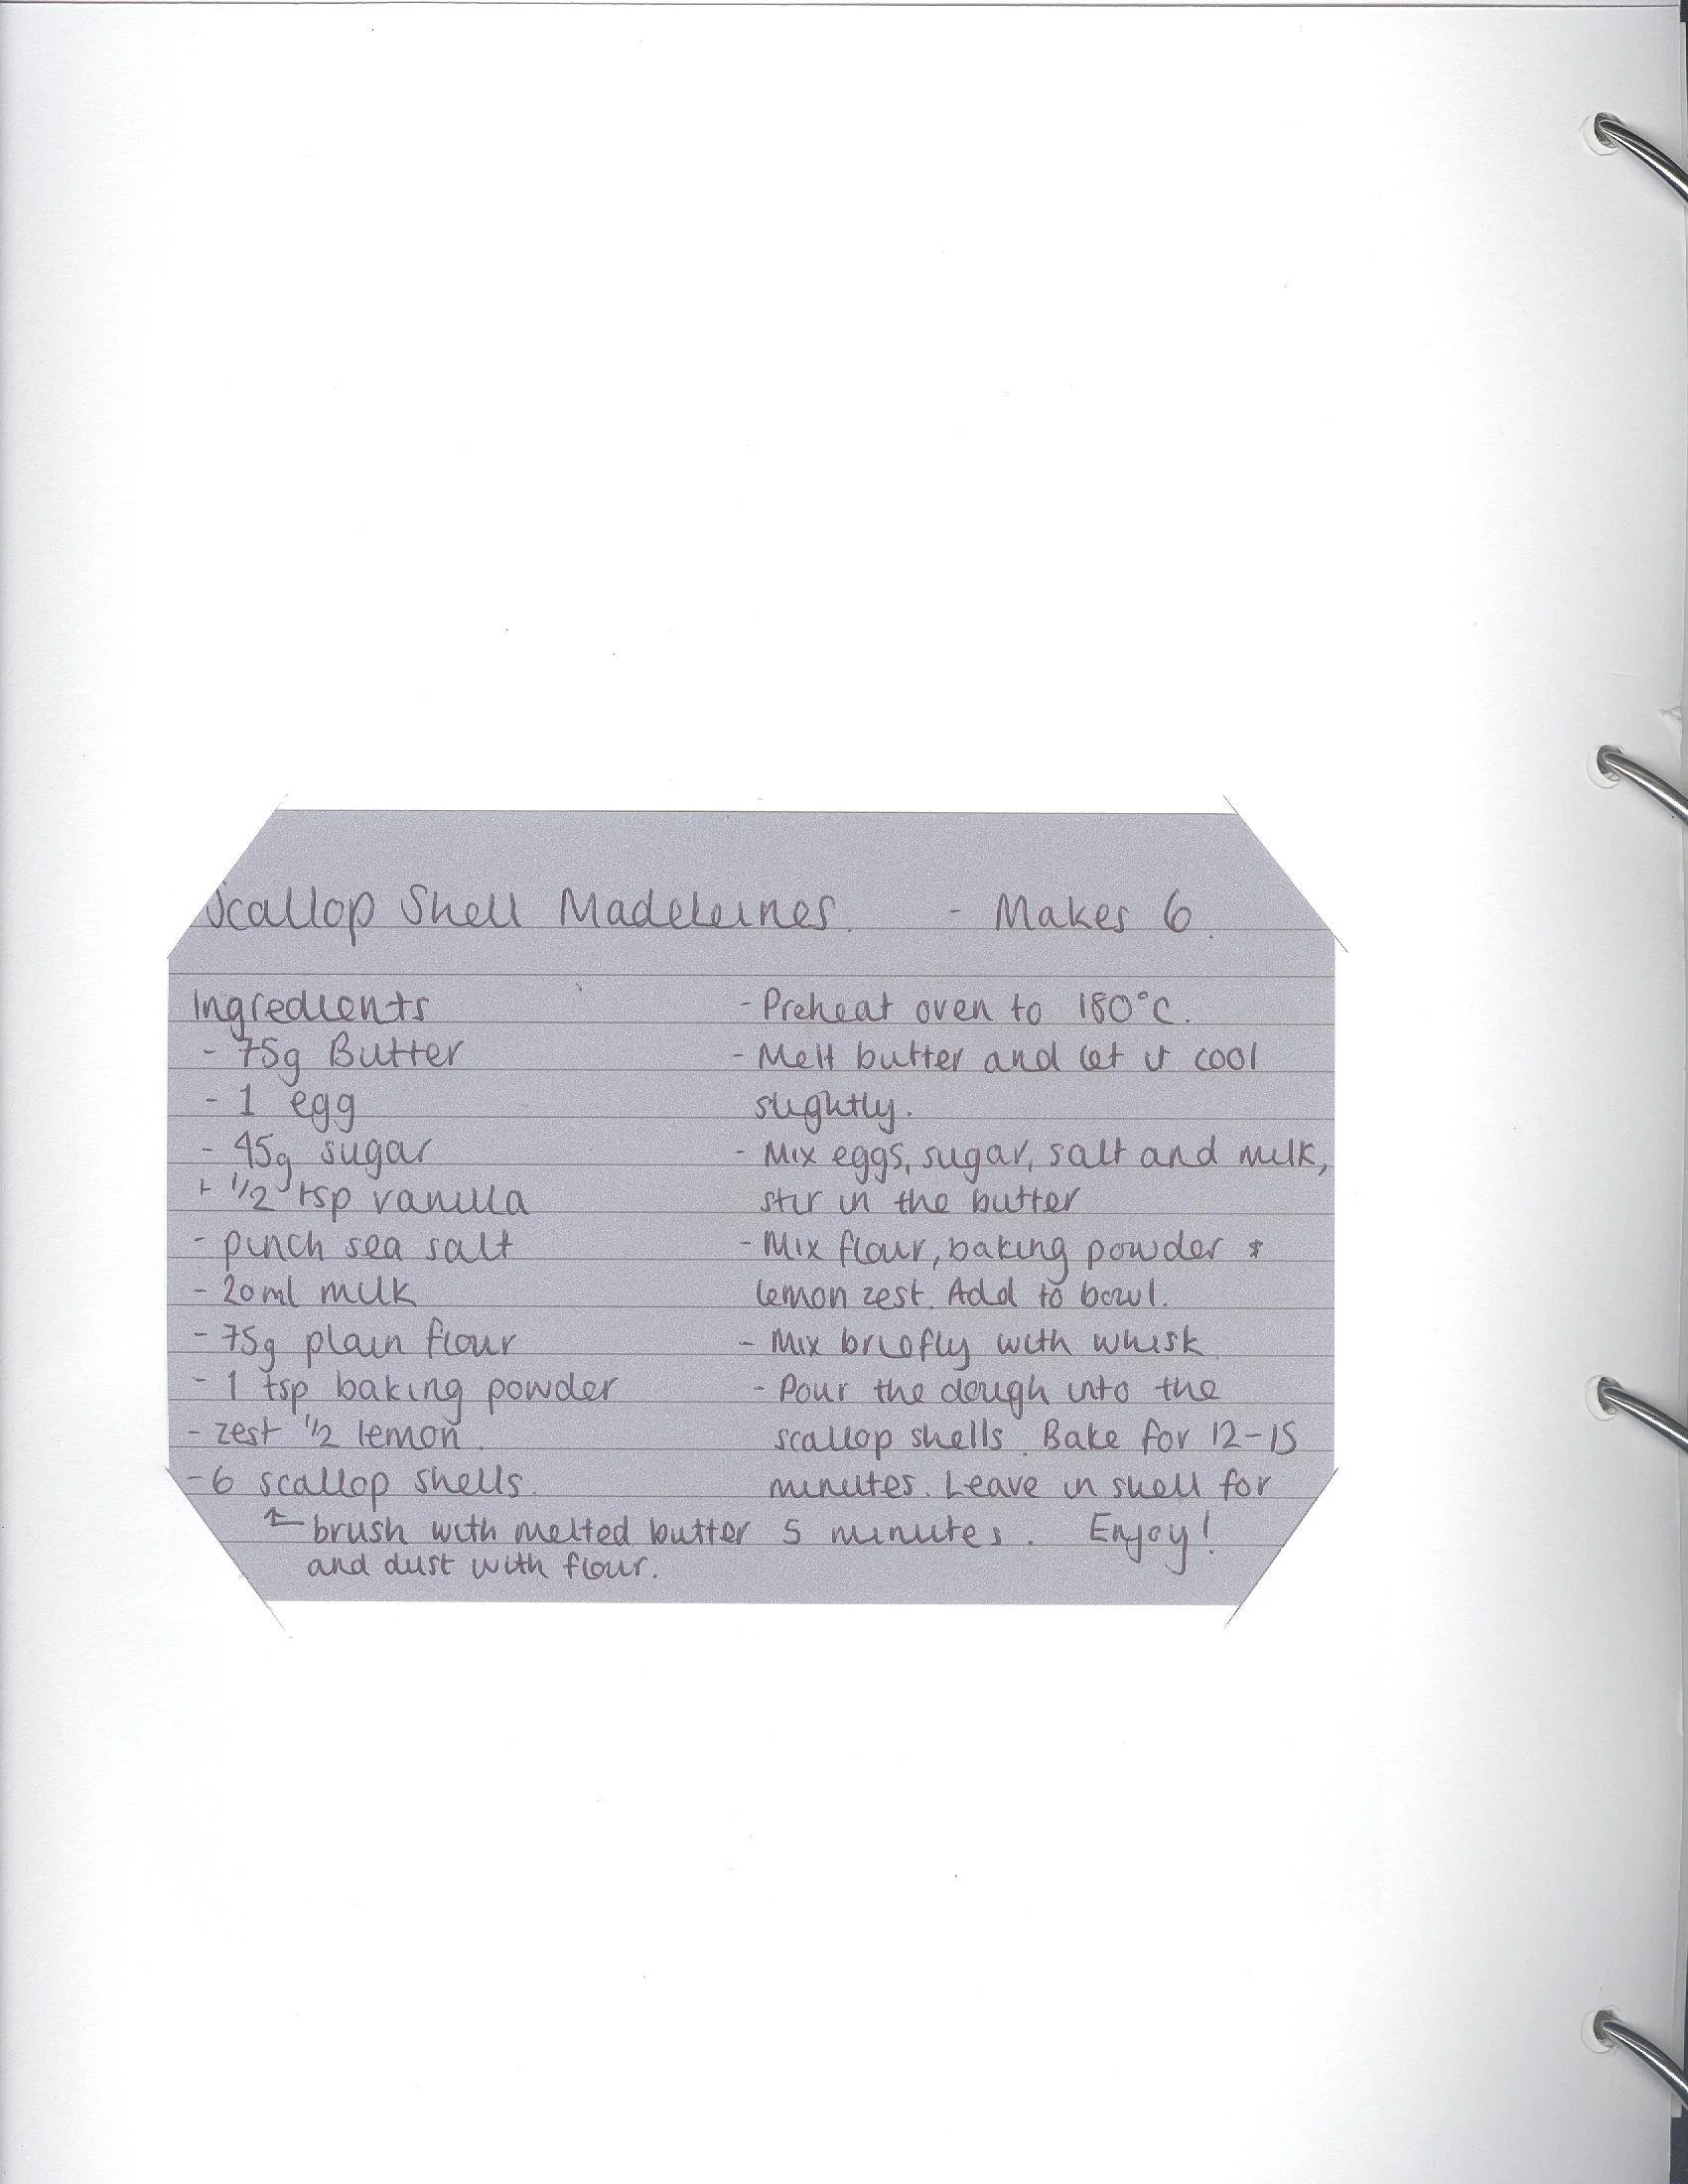 Scallop Shell Madeleines. - Makes 6.
Ingredients
- 75g Butter
- 1 egg
- 45g sugar
+ 1/2 tsp vanilla
- pinch sea salt
- 20ml milk
- 75g plain flour
- 1 tsp baking powder
- zest 1/2 lemon.
- 6 scallop shells.
brush with melted butter
and dust with flour.
- Preheat oven to 180°C.
- Melt butter and let it cool
slightly.
- Mix eggs, sugar, salt and milk,
stir in the butter
- Mix flour, baking powder &
lemon zest. Add to bowl.
- Mix briefly with whisk.
- Pour the dough into the
scallop shells. Bake for 12-15
minutes. Leave in shell for
5 minutes. Enjoy!